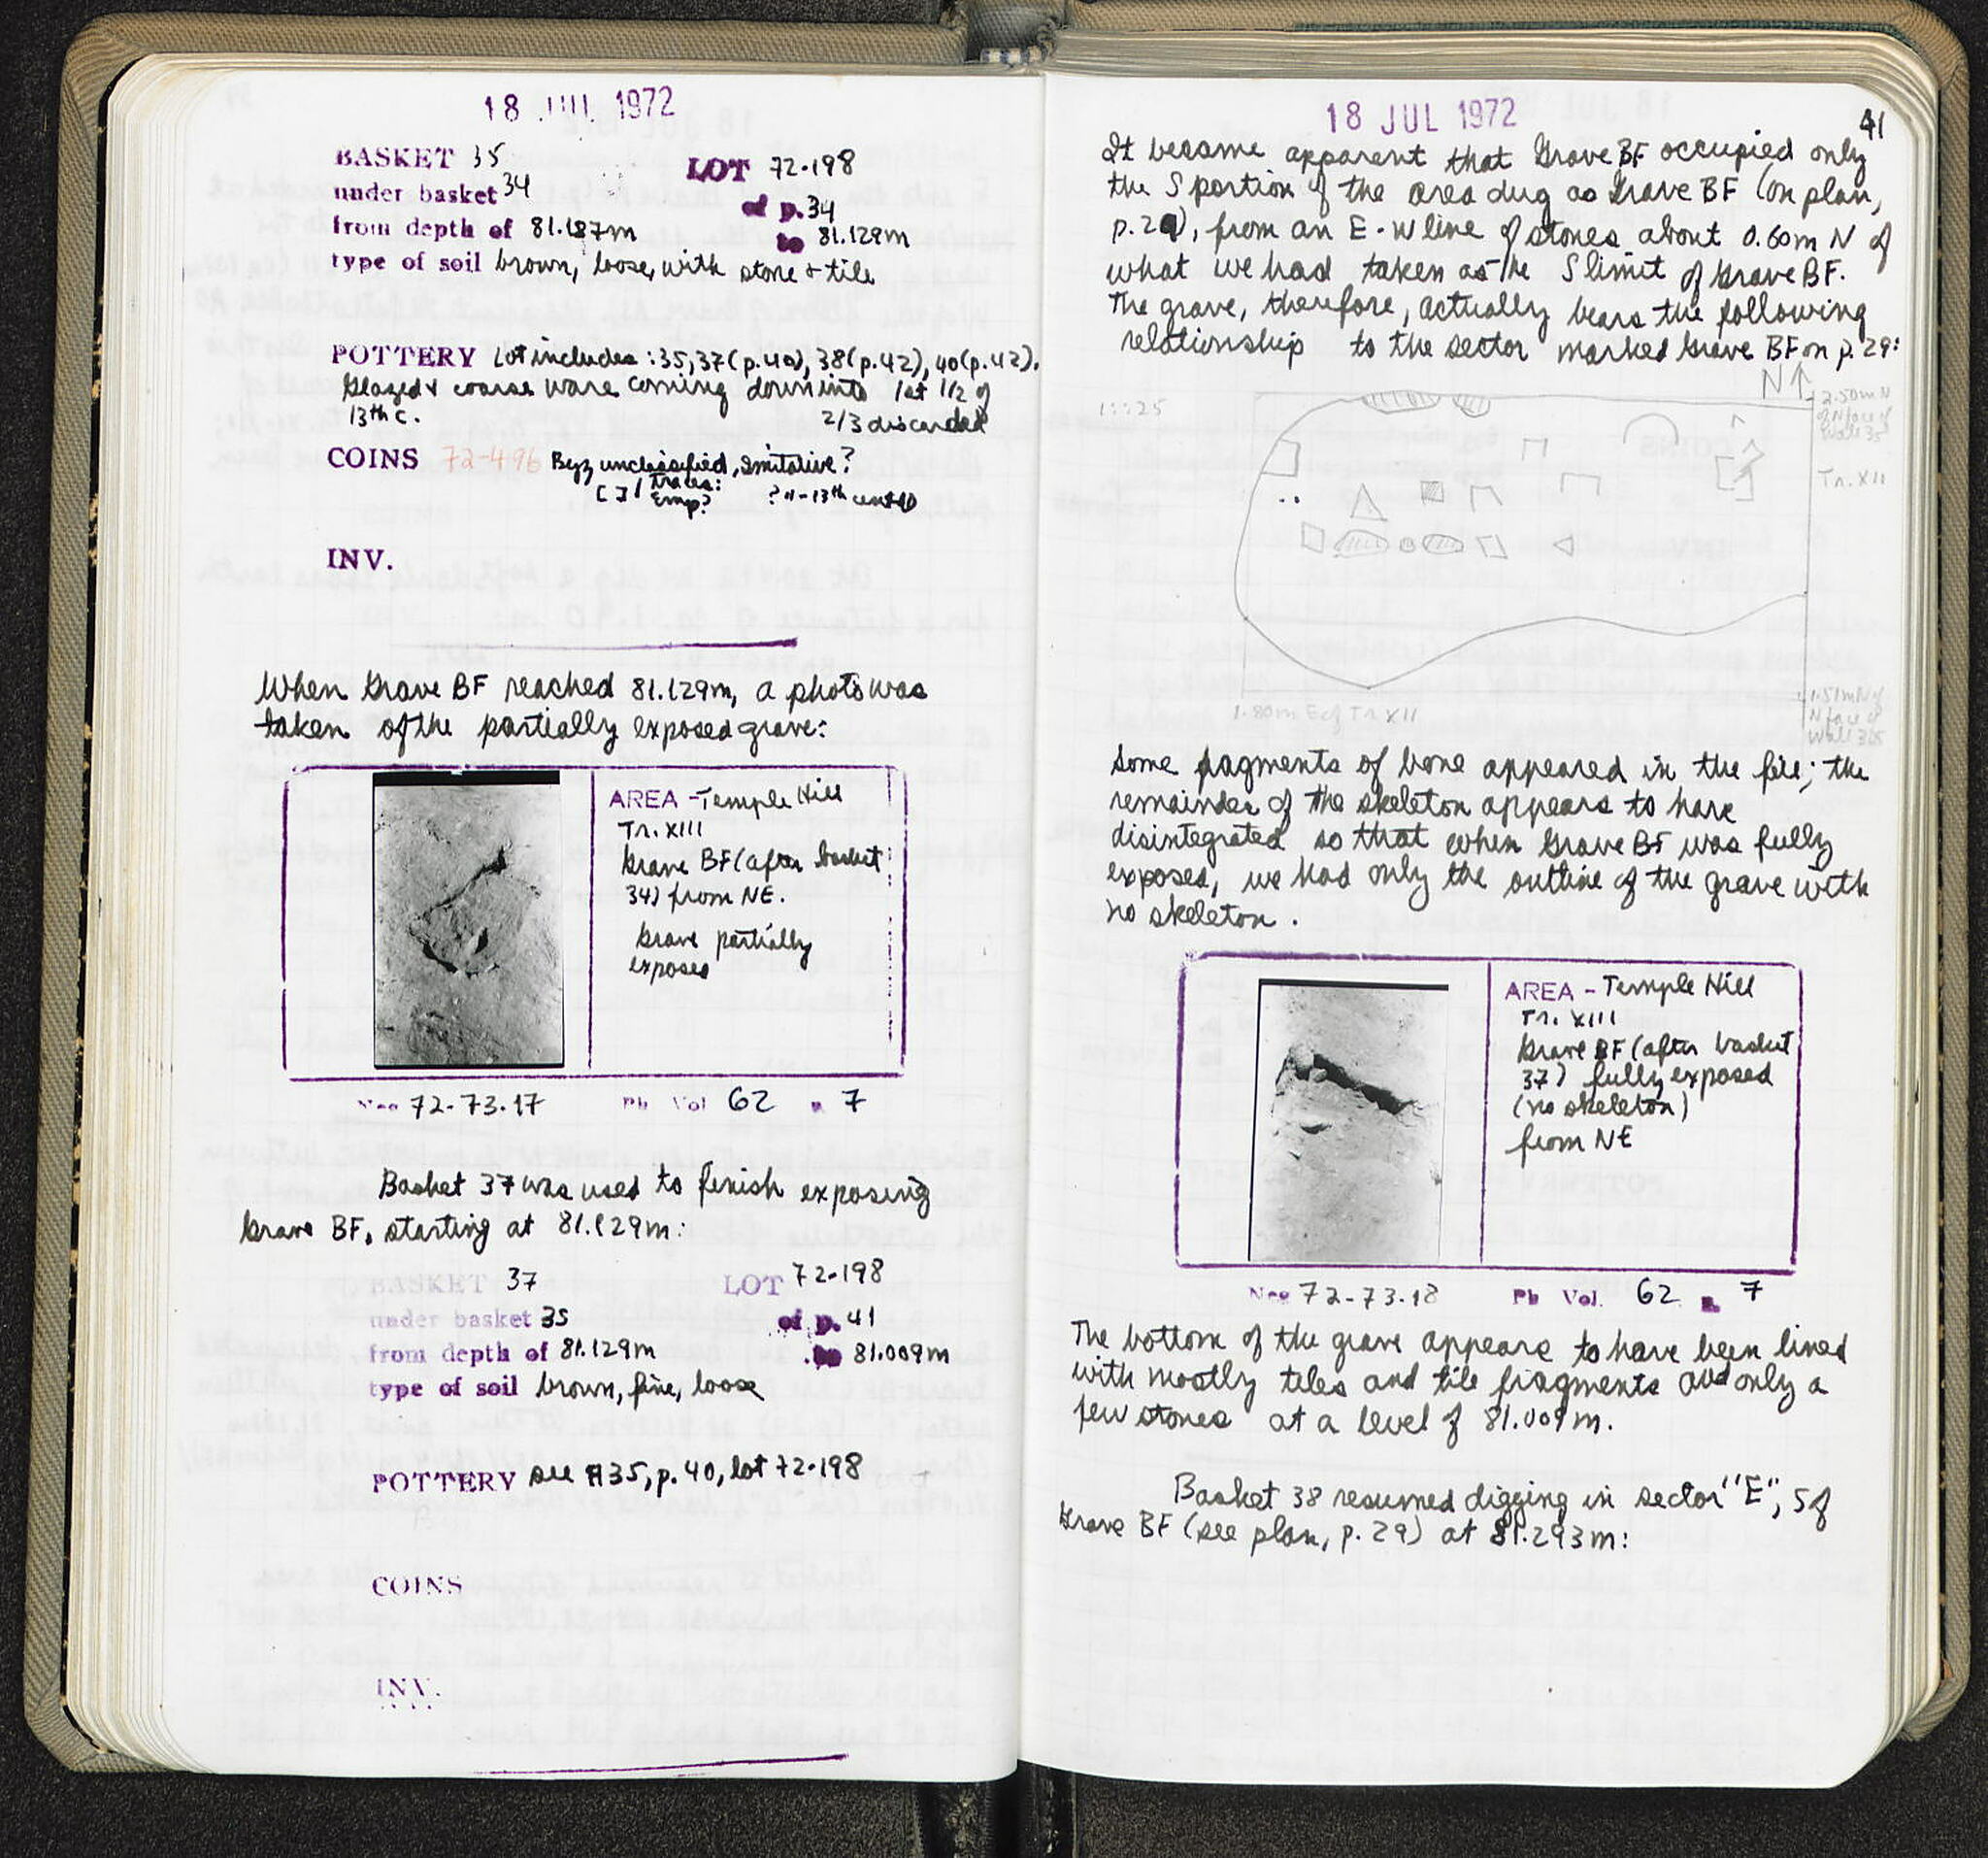 18 JUL 1972
BASKET 35 LOT 72-198
under basket 34 of p. 34
from depth of 81.187m to 81.129m
type of soil brown, loose, with stone & tile
POTTERY Lot includes: 35, 37 (p. 40), 38 (p. 42), 40 (p. 42).
Glazed & coarse ware coming down into 1st 1/2 of
13th c. 2/3 discarded
COINS 72-496 Byz unclassified, imitative?
[ ] / Traces: Emp? ? 11-13th cent AD
INV.
When Grave BF reached 81.129m, a photo was
taken of the partially exposed grave:
AREA - Temple Hill
Tr. XIII
Grave BF (after basket
34) from NE.
Grave partially
exposed
Neg 72-73-17 Ph Vol 62 p. 7
Basket 37 was used to finish exposing
Grave BF, starting at 81.129m:
BASKET 37 LOT 72-198
under basket 35 of p. 41
from depth of 81.129m to 81.009m
type of soil brown, fine, loose
POTTERY see #35, p. 40, lot 72-198
COINS
INV.
18 JUL 1972
41
It became apparent that Grave BF occupied only
the S portion of the area dug as Grave BF (on plan,
p. 29), from an E-W line of stones about 0.60m N of
what we had taken as the S limit of Grave BF.
The grave, therefore, actually bears the following
relationship to the sector marked Grave BF on p. 29:
N
1:25
2.50m N
of N face of
Wall 35
Tr. XII
1.80m E of Tr XII
1.51m N of
N face of
Wall 35
Some fragments of bone appeared in the fill; the
remainder of the skeleton appears to have
disintegrated so that when Grave BF was fully
exposed, we had only the outline of the grave with
no skeleton.
AREA - Temple Hill
Tr. XIII
Grave BF (after basket
37) fully exposed
(no skeleton)
from NE
Neg 72-73-18 Ph Vol. 62 p. 7
The bottom of the grave appears to have been lined
with mostly tiles and tile fragments and only a
few stones at a level of 81.009m.
Basket 38 resumed digging in sector "E", S of
Grave BF (see plan, p. 29) at 81.293m: